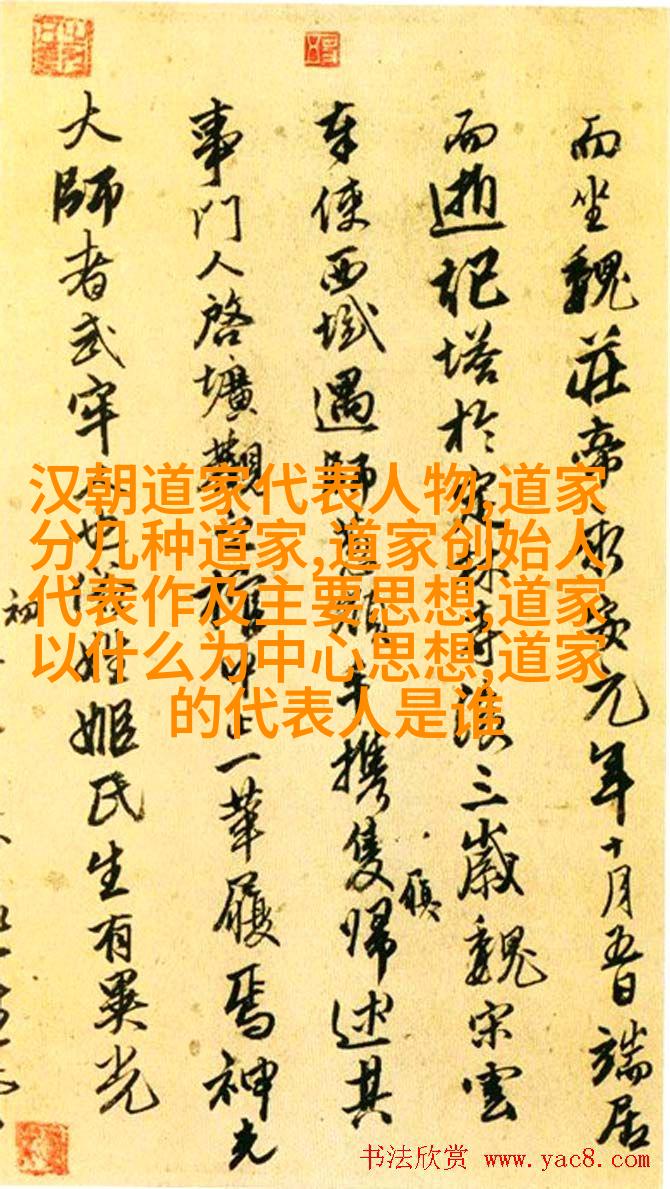 而坐魏莊帝永安元年十月五日端居
而逝記塔於定林寺後三歲魏宋雲
奉使西域遇師蔥嶺手携隻歸述其
履
事門人啓壙觀棺中止一革履焉神光
大師者武牢人也俗姓姬氏生有異光
初
汉朝道家代表人物,道家
分几种道家,道家创始人
代表作及主要思想,道家
以什么为中心思想,道家
的代表人是谁
书法欣赏 www.yac8.com